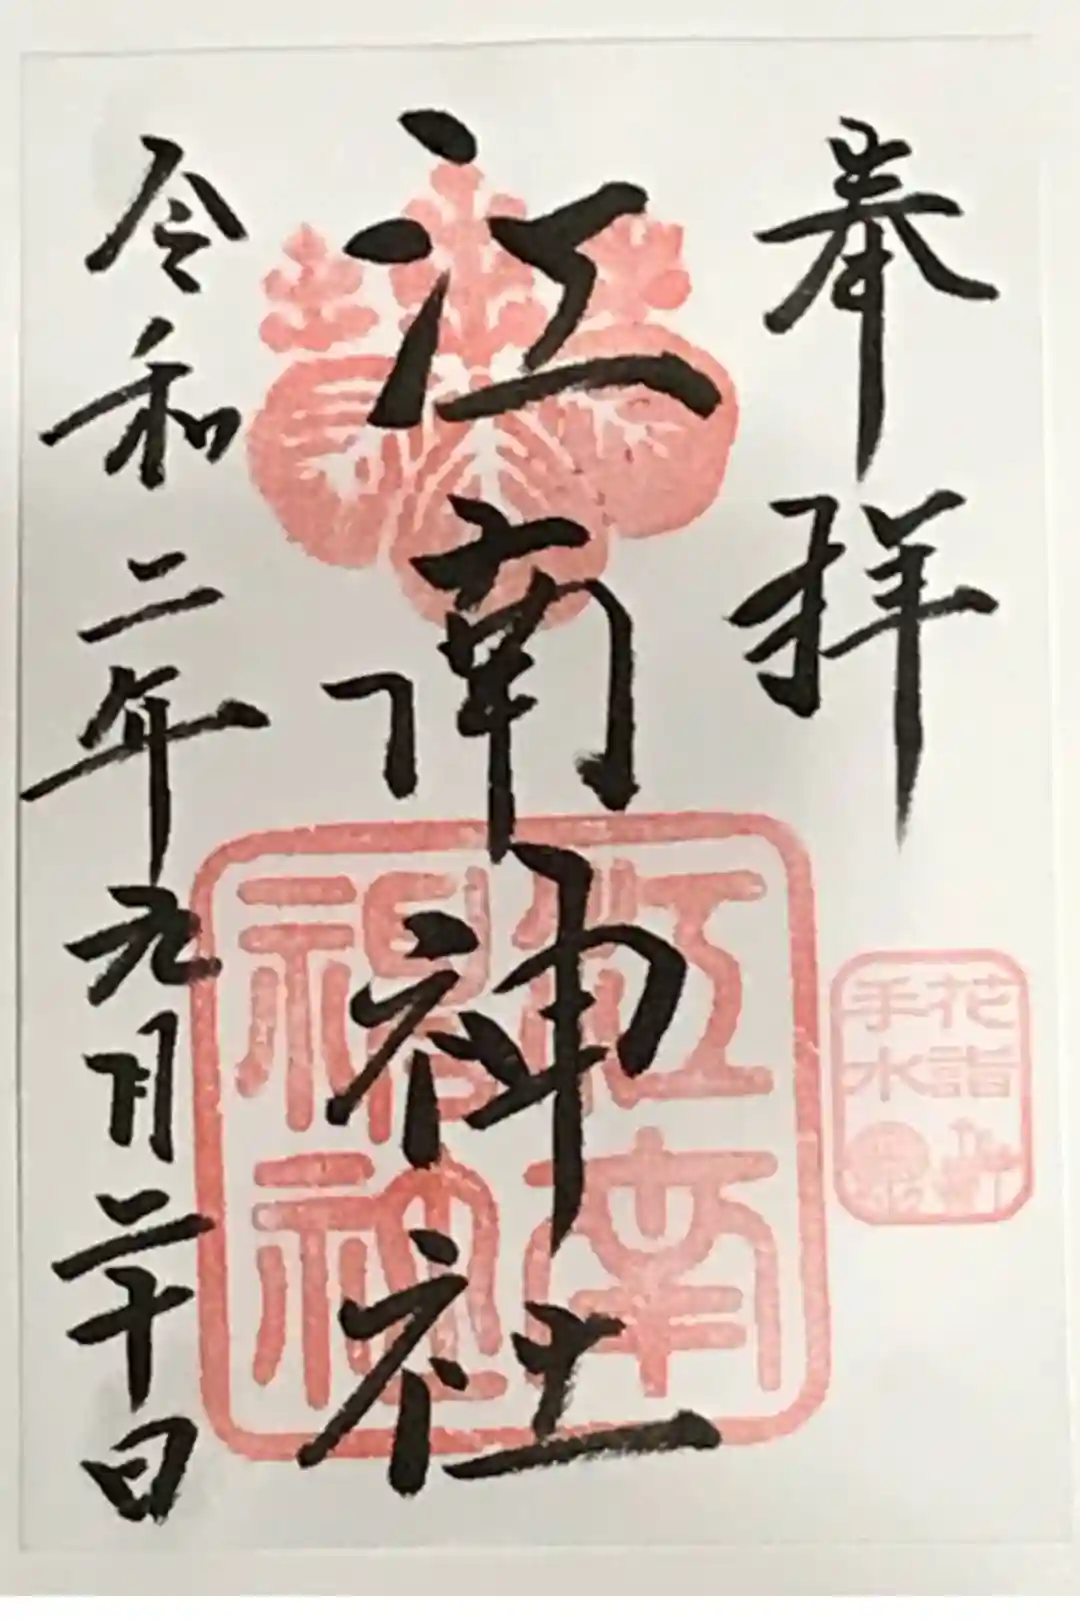 奉拝
江南神社
令和二年九月二十日
江南
神社
花詣
手水